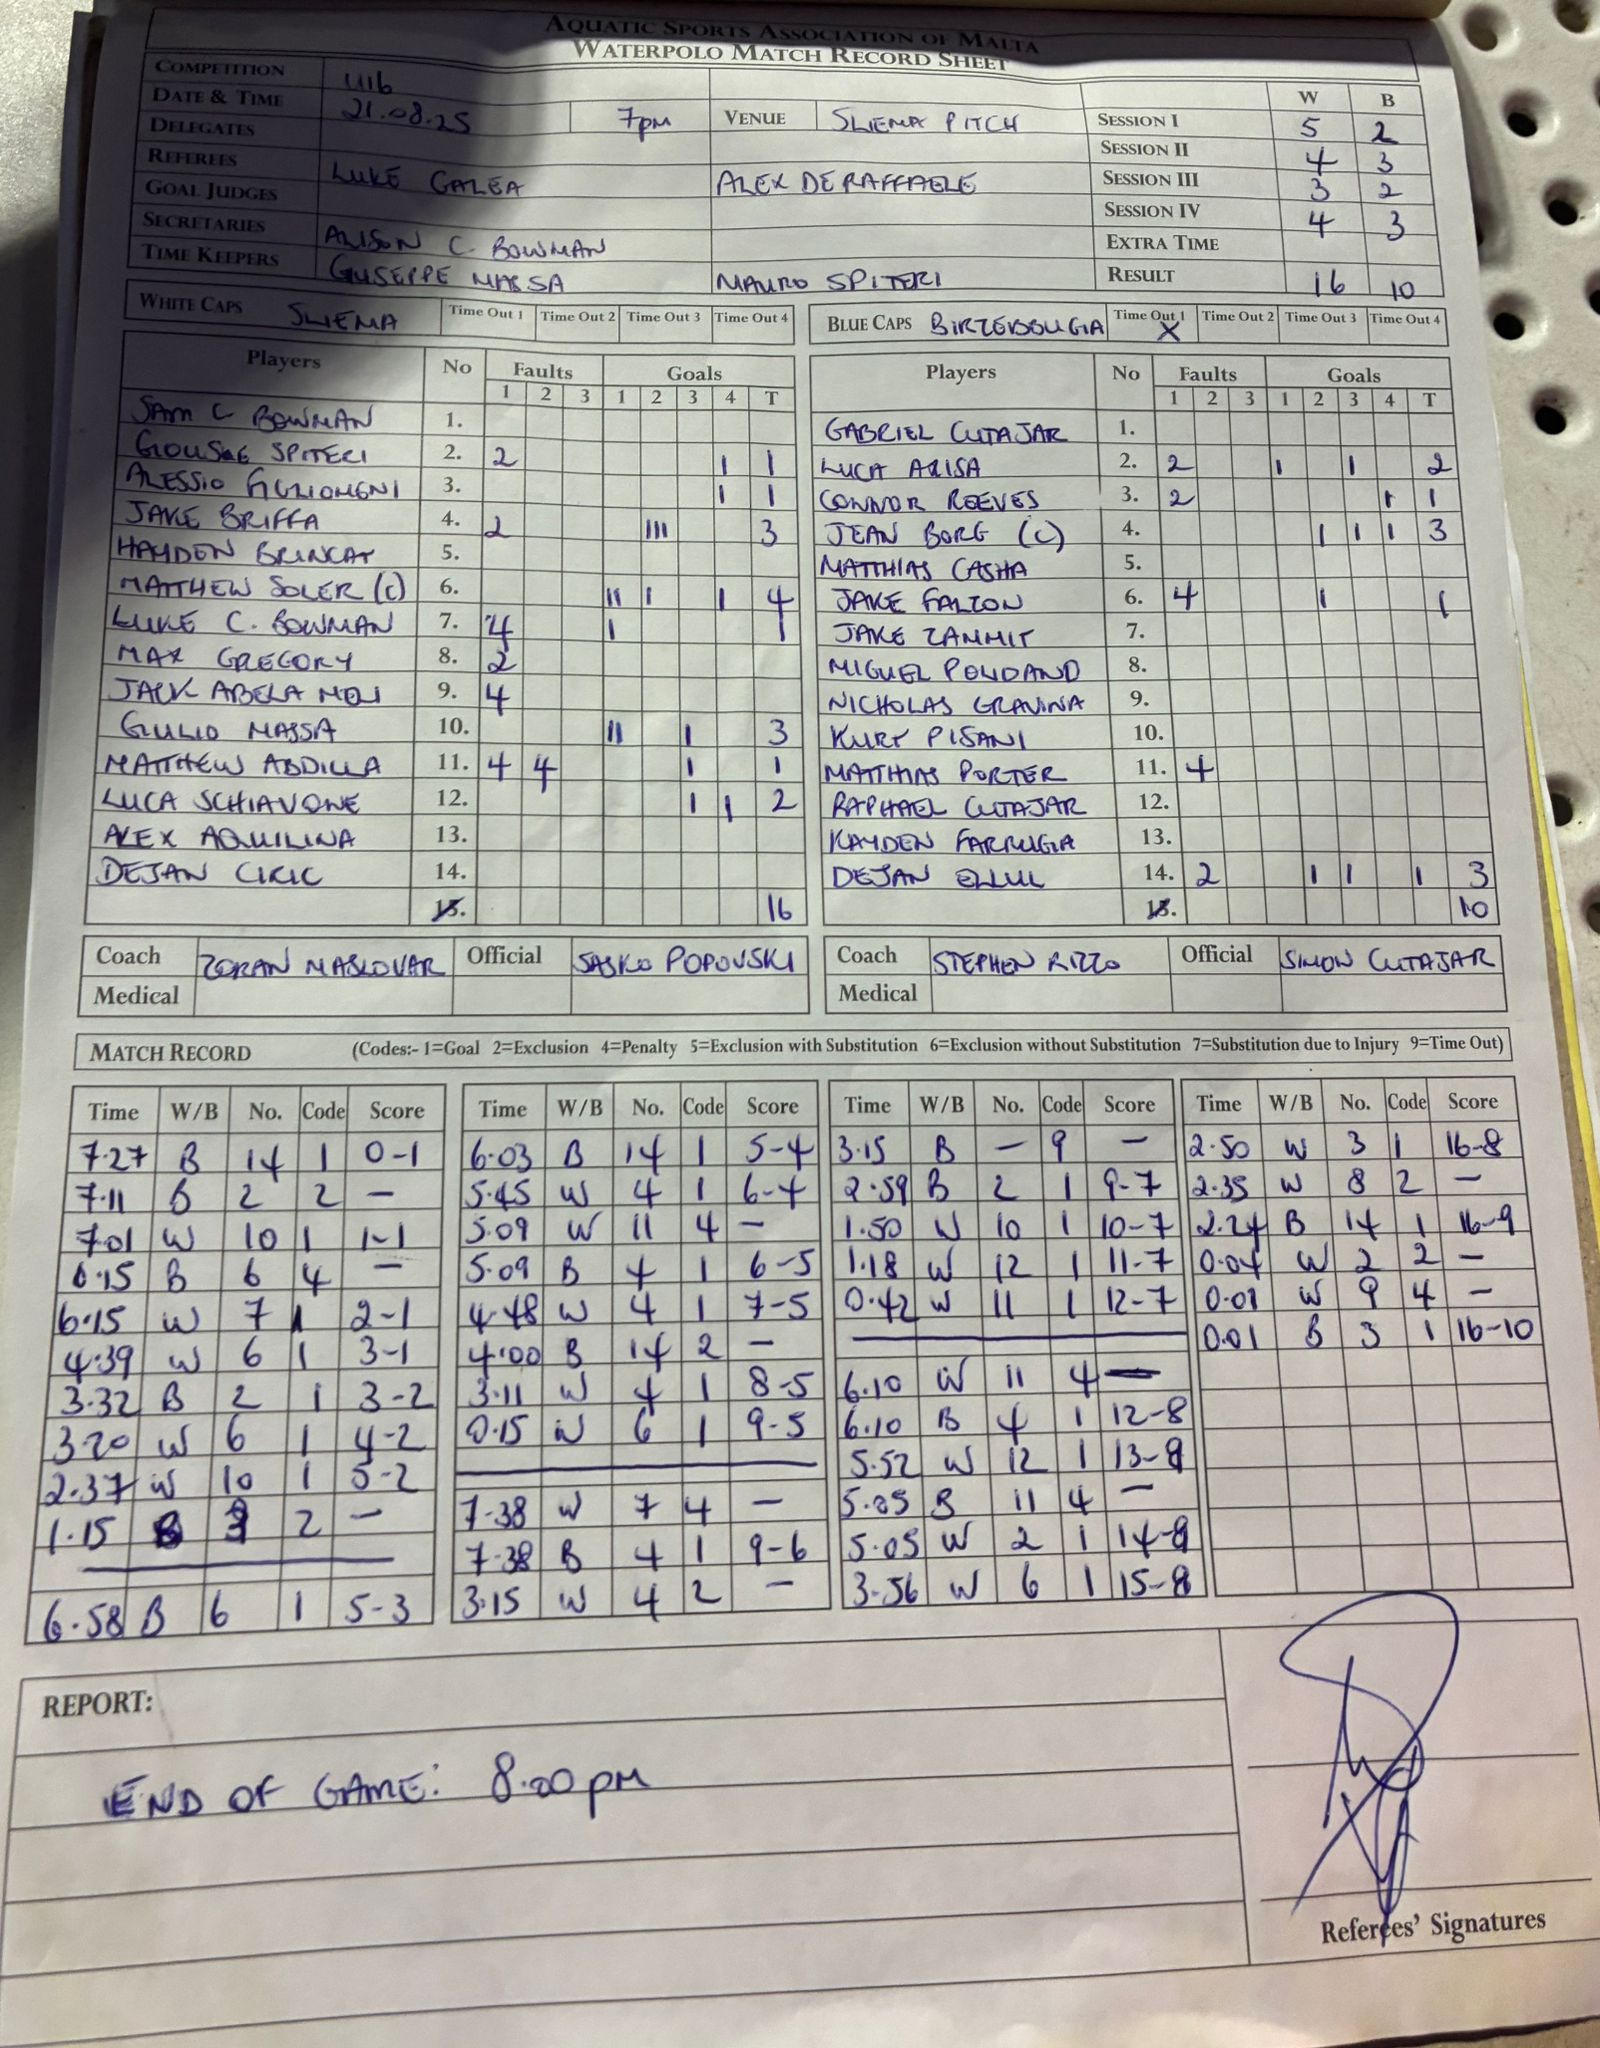 AQUATIC SPORTS ASSOCIATION OF MALTA
WATERPOLO MATCH RECORD SHEET
COMPETITION U16
DATE & TIME 21.08.25 7pm VENUE SLIEMA PITCH
DELEGATES
REFEREES LUKE GALEA ALEX DE RAFFAELE
GOAL JUDGES
SECRETARIES ALISON C. BOWMAN
TIME KEEPERS GIUSEPPE MASSA MAURO SPITERI
W B
SESSION I 5 2
SESSION II 4 3
SESSION III 3 2
SESSION IV 4 3
EXTRA TIME
RESULT 16 10
WHITE CAPS SLIEMA Time Out 1 Time Out 2 Time Out 3 Time Out 4
Players No Faults Goals
1 2 3 1 2 3 4 T
SAM C BOWMAN 1.
SPITERI 2. 2 1 1
ALESSIO 3. 1 1
JAKE BRIFFA 4. 2 111 3
HAYDEN BRINCAT 5.
MATTHEW SOLER (C) 6. 11 1 1 4
LUKE C. BOWMAN 7. 4 1 1
MAX GREGORY 8. 2
JACK ABELA 9. 4
GIULIO MASSA 10. 11 1 3
MATTHEW ABDILLA 11. 4 4 1 1
LUCA SCHIAVONE 12. 1 1 2
ALEX AQUILINA 13.
DEJAN CIRIC 14.
15. 16
BLUE CAPS BIRZEBBUGIA Time Out 1 X Time Out 2 Time Out 3 Time Out 4
Players No Faults Goals
1 2 3 1 2 3 4 T
GABRIEL CUTAJAR 1.
LUCA ARISA 2. 2 1 1 2
CONNOR REEVES 3. 2 1 1
JEAN BORG (C) 4. 1 1 1 3
MATTHIAS CASHA 5.
JAKE FALZON 6. 4 1 1
JAKE ZAMMIT 7.
MIGUEL 8.
NICHOLAS GRAVINA 9.
KURT PISANI 10.
MATTHIAS PORTER 11. 4
RAPHAEL CUTAJAR 12.
KAYDEN FARRUGIA 13.
DEJAN ELLUL 14. 2 1 1 1 3
15. 10
Coach ZORAN MASLOVAR Official SASKO POPOVSKI
Medical
Coach STEPHEN RIZZO Official SIMON CUTAJAR
Medical
MATCH RECORD (Codes:- 1=Goal 2=Exclusion 4=Penalty 5=Exclusion with Substitution 6=Exclusion without Substitution 7=Substitution due to Injury 9=Time Out)
Time W/B No. Code Score
7.27 B 14 1 0-1
7.11 B 2 2 -
7.01 W 10 1 1-1
6.15 B 6 4 -
6.15 W 7 1 2-1
4.39 W 6 1 3-1
3.32 B 2 1 3-2
3.20 W 6 1 4-2
2.37 W 10 1 5-2
1.15 B 3 2 -
6.58 B 6 1 5-3
Time W/B No. Code Score
6.03 B 14 1 5-4
5.45 W 4 1 6-4
5.09 W 11 4 -
5.09 B 4 1 6-5
4.48 W 4 1 7-5
4.00 B 14 2 -
3.11 W 4 1 8-5
0.15 W 6 1 9-5
7.38 W 7 4 -
7.38 B 4 1 9-6
3.15 W 4 2 -
Time W/B No. Code Score
3.15 B - 9 -
2.59 B 2 1 9-7
1.50 W 10 1 10-7
1.18 W 12 1 11-7
0.42 W 11 1 12-7
6.10 W 11 4 -
6.10 B 4 1 12-8
5.52 W 12 1 13-8
5.05 B 11 4 -
5.05 W 2 1 14-8
3.56 W 6 1 15-8
Time W/B No. Code Score
2.50 W 3 1 16-8
2.35 W 8 2 -
2.24 B 14 1 16-9
0.04 W 2 2 -
0.01 W 9 4 -
0.01 B 3 1 16-10
REPORT:
END OF GAME: 8.00pm
Referees' Signatures